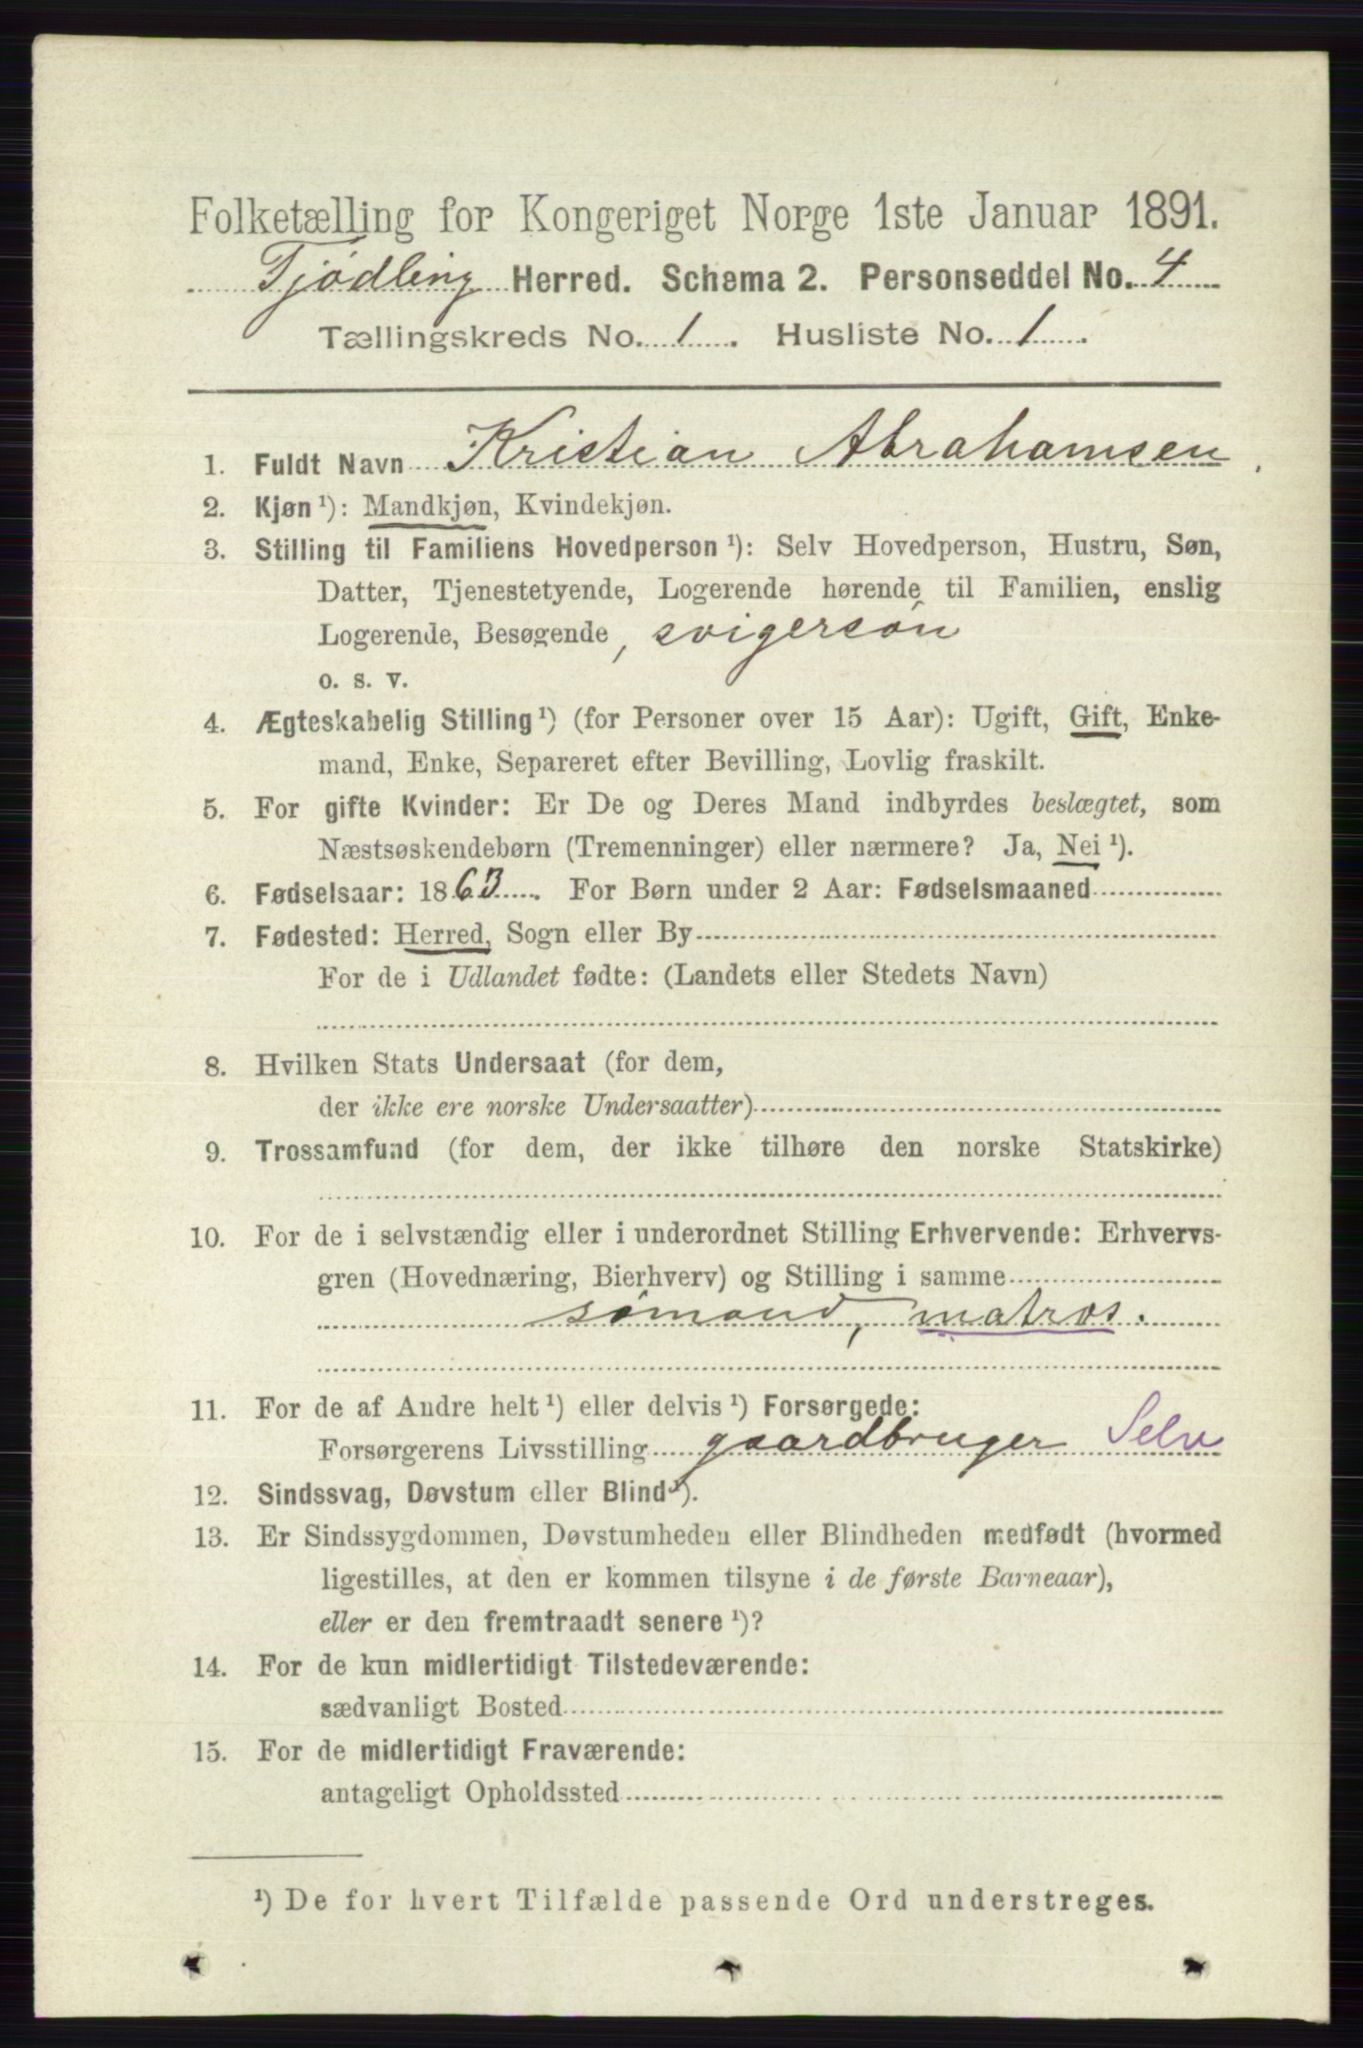 Folketælling for Kongeriget Norge 1ste Januar 1891.
Tjödling Herred. Schema 2. Personseddel No. 4
Tællingskreds No. 1. Husliste No. 1.
1. Fuldt Navn Kristian Abrahamsen,
2. Kjøn ¹): Mandkjøn, Kvindekjøn.
3. Stilling til Familiens Hovedperson ¹): Selv Hovedperson, Hustru, Søn,
Datter, Tjenestetyende, Logerende hørende til Familien, enslig
Logerende, Besøgende, svigersön
o. s. v.
4. Ægteskabelig Stilling ¹) (for Personer over 15 Aar): Ugift, Gift, Enke-
mand, Enke, Separeret efter Bevilling, Lovlig fraskilt.
5. For gifte Kvinder: Er De og Deres Mand indbyrdes beslægtet, som
Næstsøskendebørn (Tremenninger) eller nærmere? Ja, Nei ¹).
6. Fødselsaar: 1863. For Børn under 2 Aar: Fødselsmaaned
7. Fødested: Herred, Sogn eller By
For de i Udlandet fødte: (Landets eller Stedets Navn)
8. Hvilken Stats Undersaat (for dem,
der ikke ere norske Undersaatter)
9. Trossamfund (for dem, der ikke tilhøre den norske Statskirke)
10. For de i selvstændig eller i underordnet Stilling Erhvervende: Erhvervs-
gren (Hovednæring, Bierhverv) og Stilling i samme
sömand, matros.
11. For de af Andre helt ¹) eller delvis ¹) Forsørgede:
Forsørgerens Livsstilling gaardbruger Selv
12. Sindssvag, Døvstum eller Blind ¹).
13. Er Sindssygdommen, Døvstumheden eller Blindheden medfødt (hvormed
ligestilles, at den er kommen tilsyne i de første Barneaar),
eller er den fremtraadt senere ¹)?
14. For de kun midlertidigt Tilstedeværende:
sædvanligt Bosted
15. For de midlertidigt Fraværende:
antageligt Opholdssted
¹) De for hvert Tilfælde passende Ord understreges.